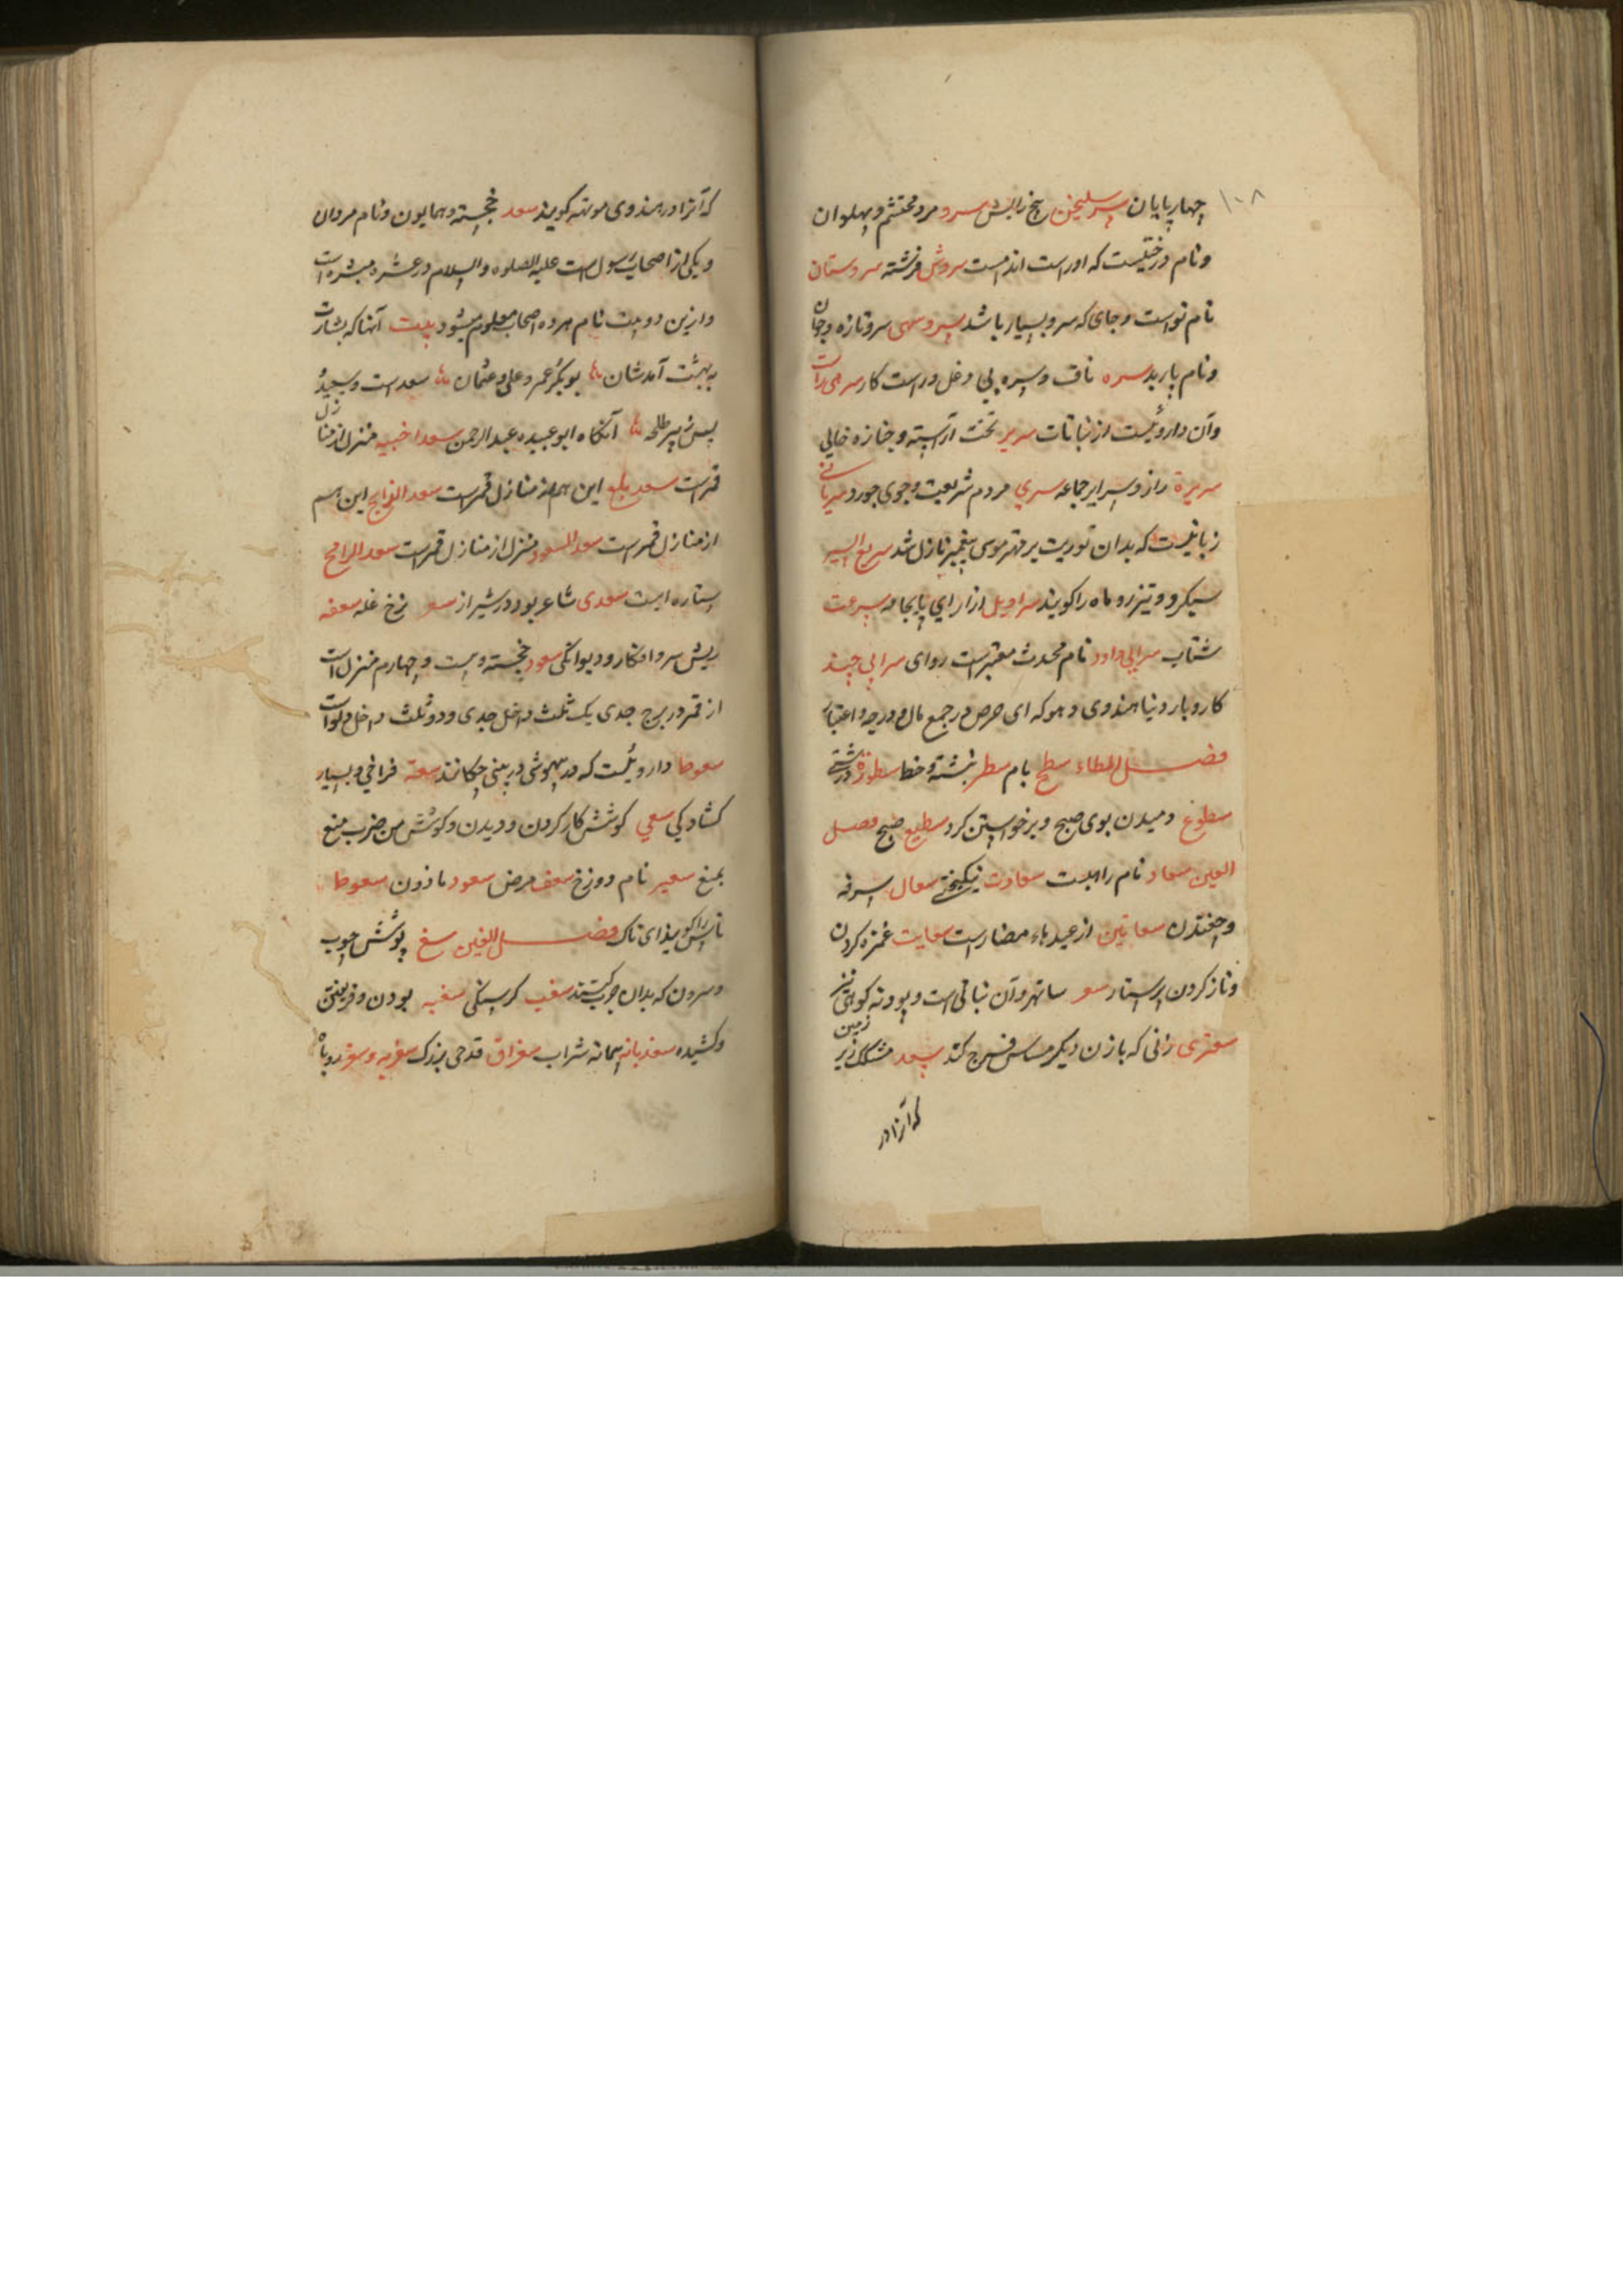 ۱۰۸
چهارپایان سریلیخن بیخ رابیش سرو مرد محتشم و پهلوان
و نام درختیست که اوراست اندامست سروش فرشته سروستان
نام نواست و جای که سرو بسیار باشد سرو سهی سرو تازه و جوان
و نام باربد سره ناف و سره بی دغل و راست کار
و آن داروئیست از نباتات سریر تخت آراسته و جنازه خالی
سریرة راز و سرایر جماعه سری مردم شریعت و جوی خورد سریانی
زبانیست که بدان توریت بر مهتر موسی پیغمبر نازل شد سریع السیر
سبکرو و تیزرو ماه را گویند سراویل ازار ای پایجامه سرعت
شتاب سرابی داود نام محدث معتبر است روای سرابی چند
کاروبار دنیا هندوی دهوکه ای حرص در جمع مال و درجه و اعتبار
فصل الطاء سطح بام سطر نبشته و خط سطوة درشتی
سطوع دمیدن بوی صبح و برخواستن گرد سطیع صبح فصل
العین سعاد نام را هلست سعادت نیکبختی سعال سرفه
و خفتدن سعانین از عیدهاء نصارا است سعایت غمزه کردن
و ناز کردن پرستار سعتر ساتهر و آن نباتی است و پودنه کوهی نیز
سعتری زنی که با زن دیگر مساس فرج کند سعد مشک زیر زمین
که آنرا در
که آنرا در هندوی موتهه گویند سعد خجسته و همایون و نام مردان
و یکی از اصحاب رسول است علیه الصلوه والسلام در عشره مبشره است
و ازین دو بیت نام هر ده اصحاب معلوم میشود بیت آنها که بشارت
به بهشت آمدشان بوبکر و عمر و علی و عثمان سعد است و سعید
پس زبیر طلحه آنگاه ابوعبیده عبدالرحمن سعد اخبیه منزل از منازل
قمر است سعد بلع این هم از منازل قمر است سعد الذابح این هم
از منازل قمر است سعد السعود منزل از منازل قمر است سعد الرامح
ستاره است سعدی شاعر بود در شیراز سعر نرخ غله سعفه
ریش سر و افکار و دیوانگی سعود خجسته و بیست و چهارم منزل است
از قمر در برج جدی یک ثلث داخل جدی و دو ثلث داخل دلو است
سعوط داروئیست که در بیهوشی در بینی چکانند سعة فراخی و بسیار
کشادگی سعی کوشش کار کردن و دویدن و کوشش من ضرب منع
یمنع سعیر نام دوزخ سعف مرض سعود مادون سعوط
ناس را گویند ای ناک فصل الغین سغ پوشش چوب
و سرون که بدان چوب کشند سغب گرسنگی سغبه بودن و فریفتن
و کشیده سغدیانه پیمانه شراب سغراق قدحی بزرگ سغربه و سغر روباه